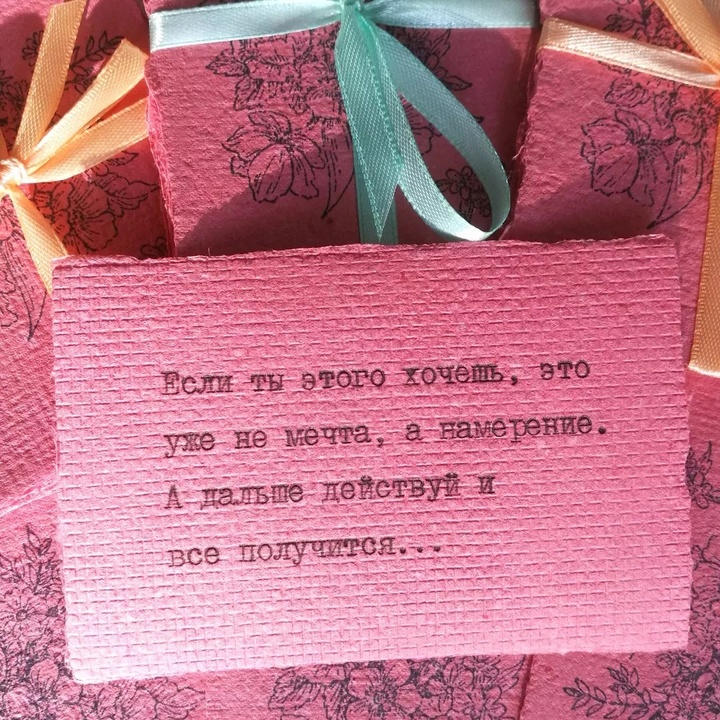 Если ты этого хочешь, это
уже не мечта, а намерение.
А дальше действуй и
все получится...